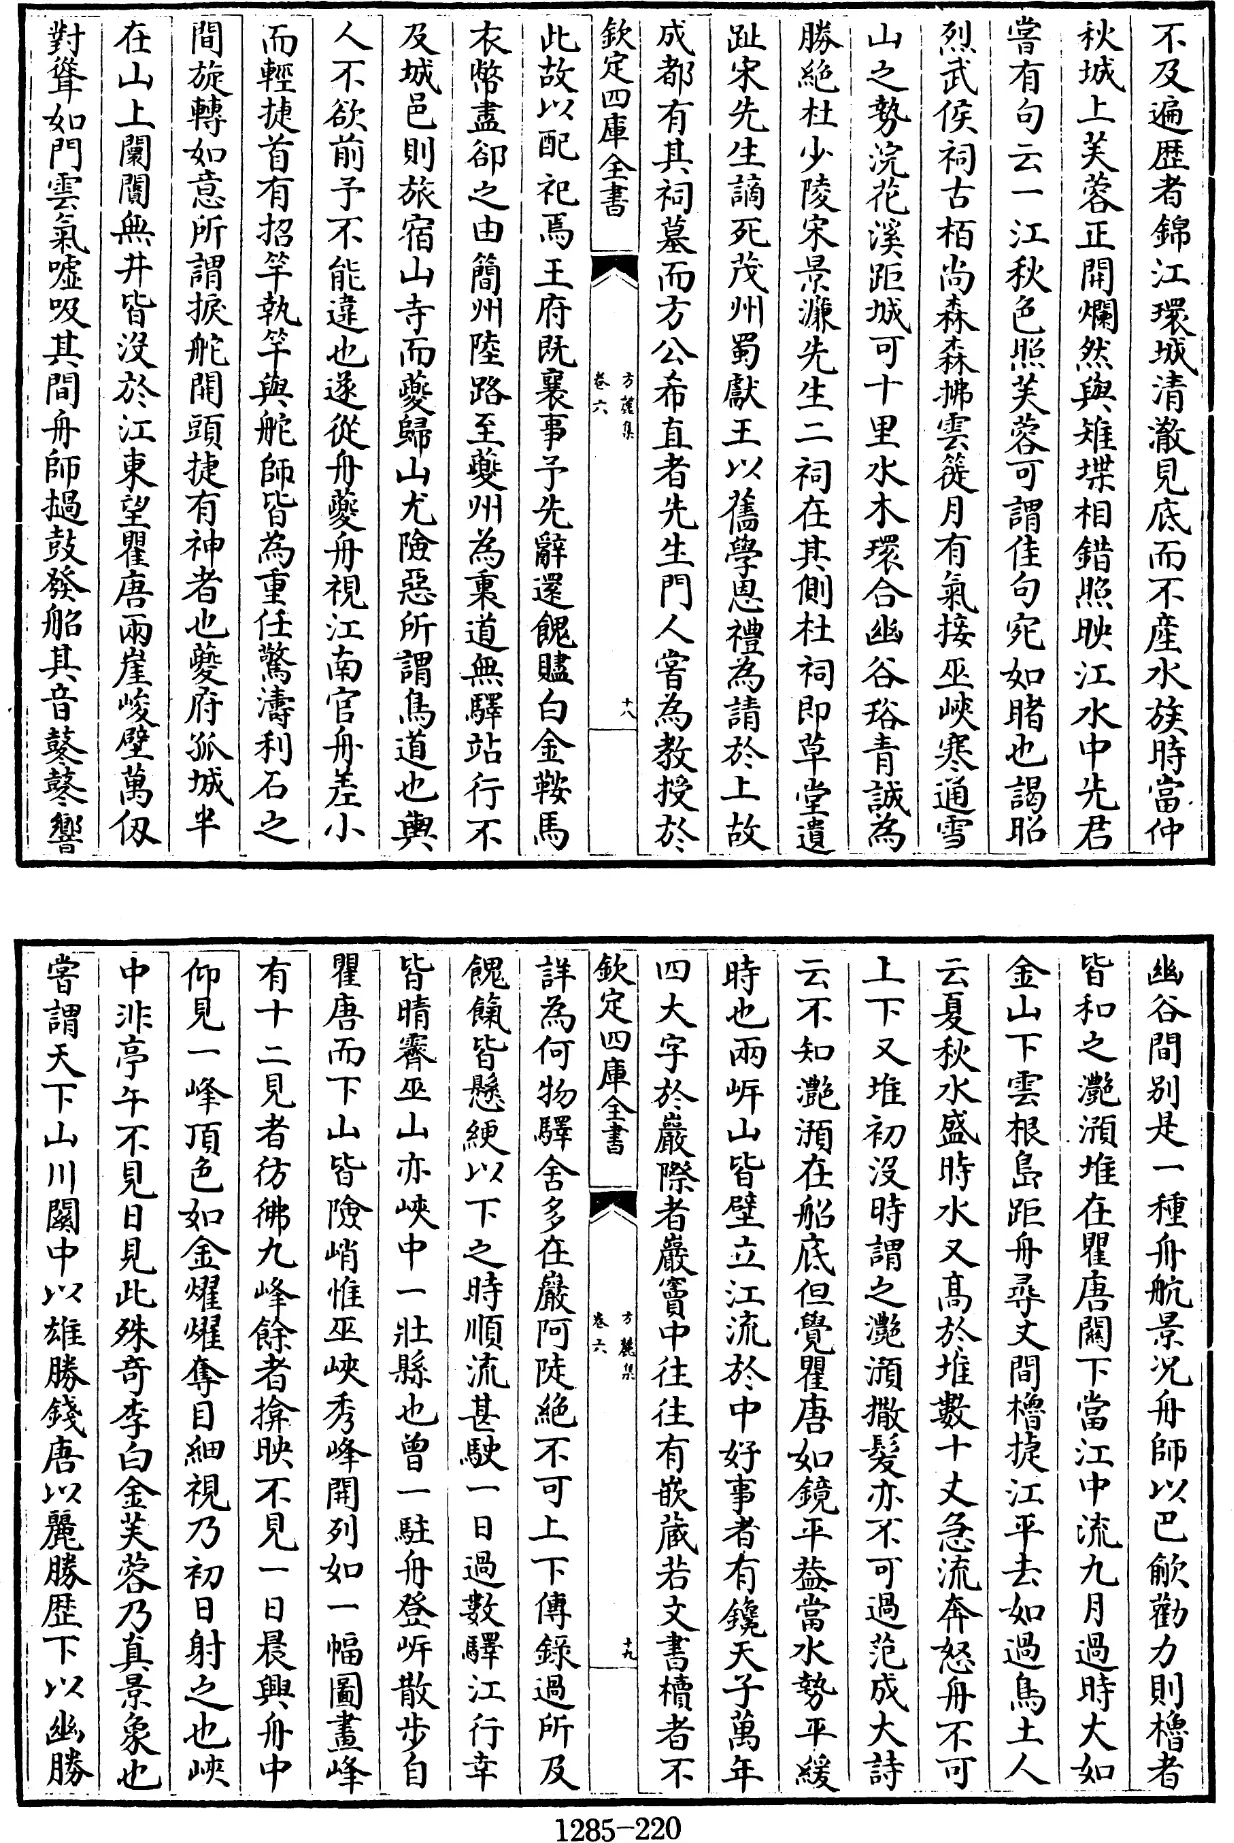 不及遍歴者錦江環城清澈見底而不產水族時當仲
秋城上芙蓉正開爛然與雉堞相錯照映江水中先君
嘗有句云一江秋色照芙蓉可謂佳句宛如睹也謁昭
烈武侯祠古栢尚森森拂雲篵月有氣接巫峽寒通雪
山之勢浣花溪距城可十里水木環合幽谷發青誠為
勝絶杜少陵宋景濂先生二祠在其側杜祠即草堂遺
趾宋先生謫死茂州蜀獻王以舊學恩禮為請於上故
成都有其祠墓而方公希直者先生門人嘗為教授於
欽定四庫全書
方麓集
卷六
十八
此故以配祀焉王府既襄事予先辭還餽贐白金鞍馬
衣幣盡卻之由簡州陸路至夔州為裏道無驛站行不
及城邑則旅宿山寺而夔歸山尤險惡所謂鳥道也輿
人不欲前予不能違也遂從舟夔舟視江南官舟差小
而輕捷首有招竿執竿與舵師皆為重任驚濤利石之
間旋轉如意所謂捩舵開頭捷有神者也夔府孤城半
在山上闤闠無井皆沒於江東望瞿唐兩崖峻壁萬仭
對聳如門雲氣噓吸其間舟師撾鼓發船其音鼕鼕響
幽谷間别是一種舟航景况舟師以巴歈勸力則櫓者
皆和之灔澦堆在瞿唐關下當江中流九月過時大如
金山下雲根島距舟尋丈間櫓捷江平去如過鳥土人
云夏秋水盛時水又高於堆數十丈急流奔怒舟不可
上下又堆初沒時謂之灔澦撒髮亦不可過范成大詩
云不知灔澦在船底但覺瞿唐如鏡平葢當水勢平緩
時也兩岍山皆壁立江流於中好事者有鑱天子萬年
四大字於巖際者巖竇中往往有嵌蔵若文書櫝者不
欽定四庫全書
方麓集
卷六
十九
詳為何物驛舍多在巖阿陡絶不可上下傳錄過所及
餽餼皆懸綆以下之時順流甚駛一日過數驛江行幸
皆晴霽巫山亦峽中一壯縣也曾一駐舟登岍散步自
瞿唐而下山皆險峭惟巫峽秀峰開列如一幅圖畫峰
有十二見者彷彿九峰餘者揜映不見一日晨興舟中
仰見一峰頂色如金燿燿奪目細視乃初日射之也峽
中非亭午不見日見此殊奇李白金芙蓉乃真景象也
嘗謂天下山川閩中以雄勝錢唐以麗勝歴下以幽勝
1285-220